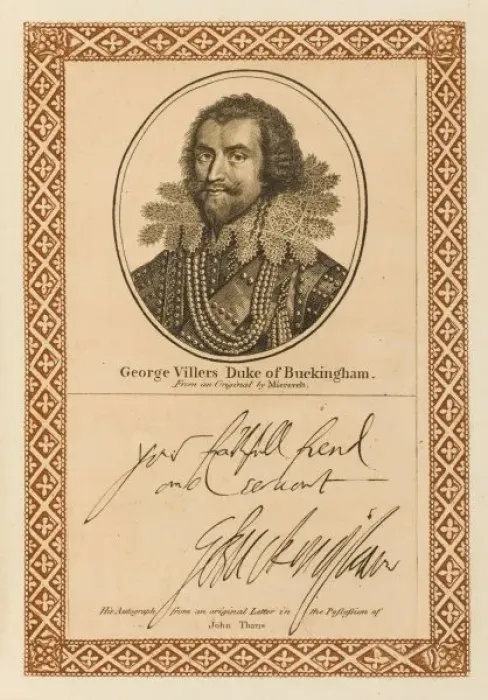 George Villers Duke of Buckingham.
From an Original by Miereveldt.
your faithfull frend
and servant
G Buckingham
His Autograph from an original Letter in the Possession of
John Thane